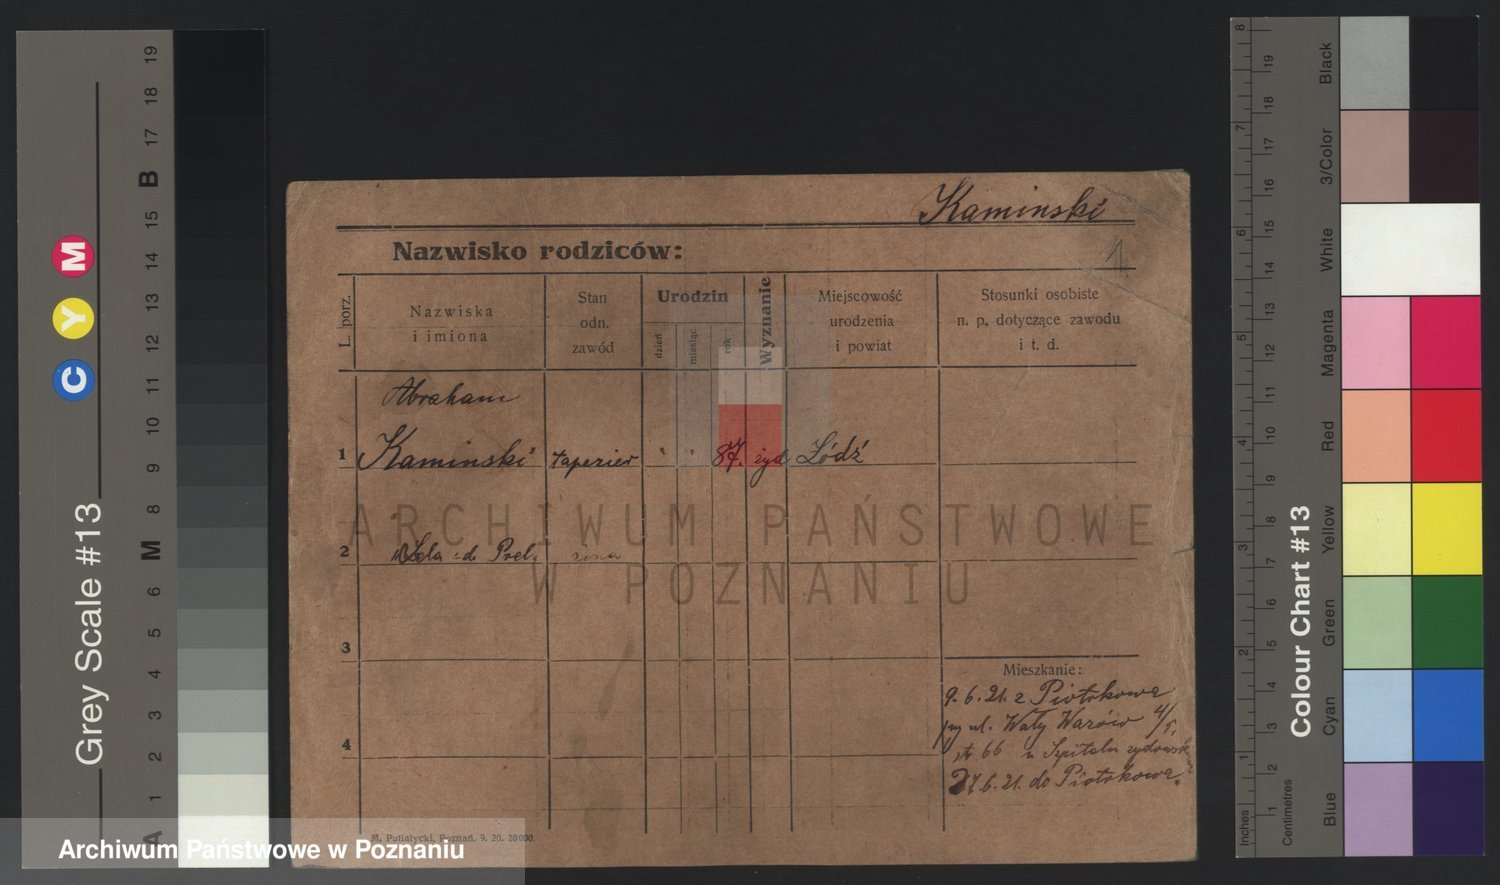 Kaminski
1
Nazwisko rodziców:
L. porz.
Nazwiska
i imiona
Stan
odn.
zawód
Urodzin
dzień
miesiąc
rok
Wyznanie
Miejscowość
urodzenia
i powiat
Stosunki osobiste
n. p. dotyczące zawodu
i t. d.
Abraham
1 Kaminski tapezier 87. żyd Łódź
2
3
4
Mieszkanie:
9.6.21. z Piotrkowa
ul. Wały Wazów 4/5.
66 Szpitalu
27.6.21. do Piotrkowa.
M. Putiatycki, Poznań. 9. 20. 20000
ARCHIWUM PAŃSTWOWE
W POZNANIU
Archiwum Państwowe w Poznaniu
Grey Scale #13
C Y M
A 1 2 3 4 5 6 M 8 9 10 11 12 13 14 15 B 17 18 19
Colour Chart #13
Blue Cyan Green Yellow Red Magenta White 3/Color Black
Inches 1 2 3 4 5 6 7 8
Centimetres 1 2 3 4 5 6 7 8 9 10 11 12 13 14 15 16 17 18 19